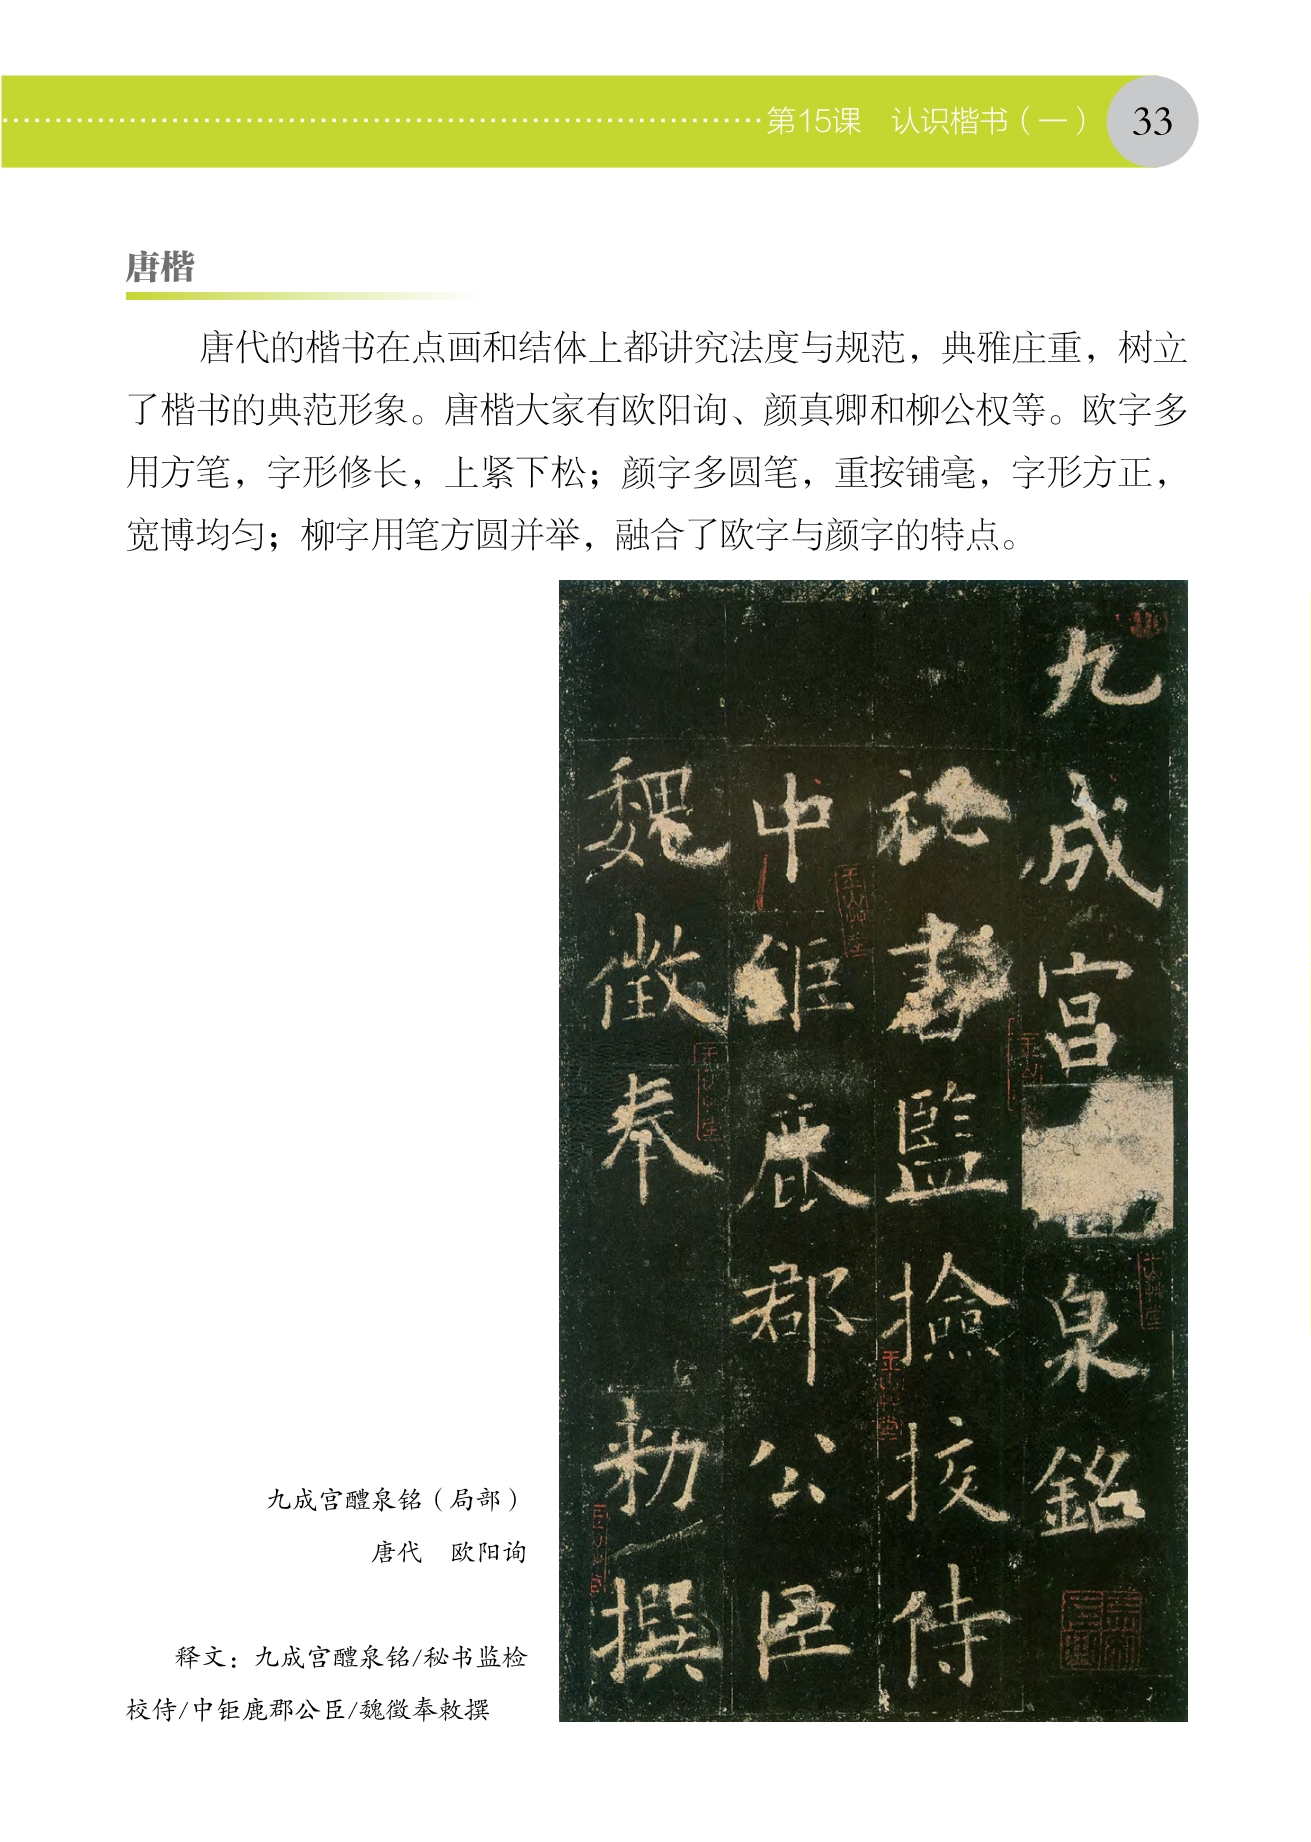 第15课　认识楷书（一）
33
唐楷
唐代的楷书在点画和结体上都讲究法度与规范，典雅庄重，树立
了楷书的典范形象。唐楷大家有欧阳询、颜真卿和柳公权等。欧字多
用方笔，字形修长，上紧下松；颜字多圆笔，重按铺毫，字形方正，
宽博均匀；柳字用笔方圆并举，融合了欧字与颜字的特点。
九成宫泉銘
祕書監撿挍侍
中鉅鹿郡公臣
魏徵奉勑撰
九成宫醴泉铭（局部）
唐代　欧阳询
释文：九成宫醴泉铭/秘书监检
校侍/中钜鹿郡公臣/魏徵奉敕撰